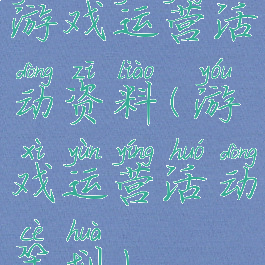 游戏运营活
dòng zī liào yóu
动资料(游
xì yùn yíng huó dòng
戏运营活动
cè huà
策划)